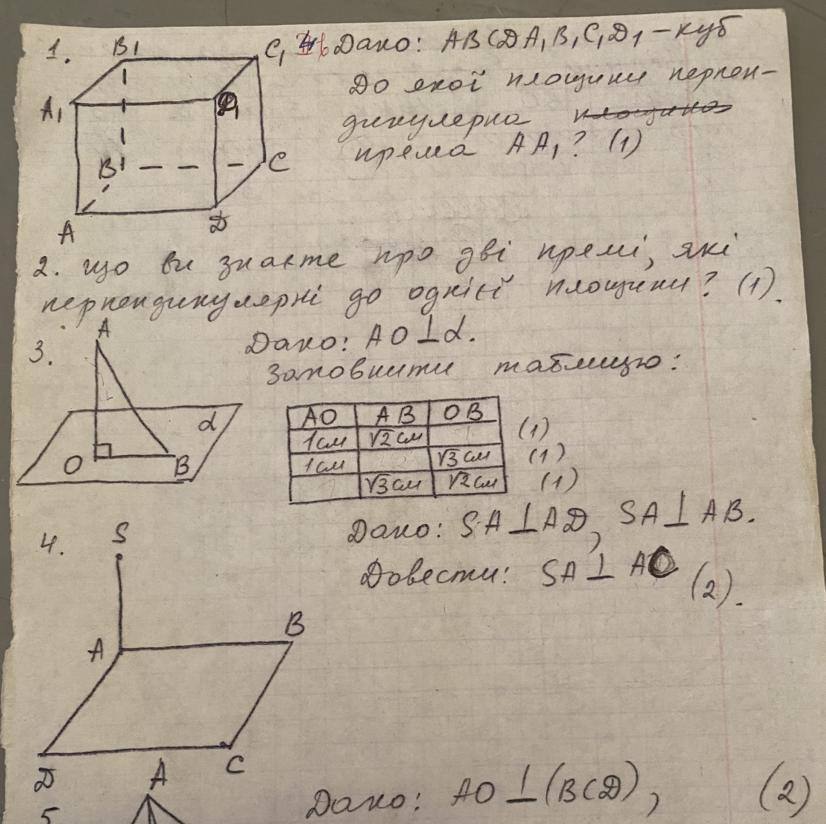 1.
B₁
C₁
A₁
D₁
B
C
A
D
Дано: ABCDA₁B₁C₁D₁ – куб
До якої площини перпен-
дикулярна площина
пряма AA₁? (1)
2. Що ви знаєте про дві прямі, які
перпендикулярні до однієї площини? (1).
3.
A
α
O
B
Дано: AO⊥α.
Заповнити таблицю:
AO AB OB
1см √2см (1)
1см √3см (1)
√3см √2см (1)
4.
S
A
B
D
C
Дано: SA⊥AD, SA⊥AB.
Довести: SA⊥AC (2).
5
A
Дано: AO⊥(BCD), (2)